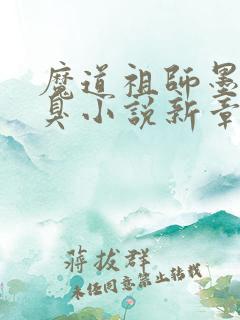 魔道祖師墨
臭小說新章
蔣拔群
未经同意禁止转载